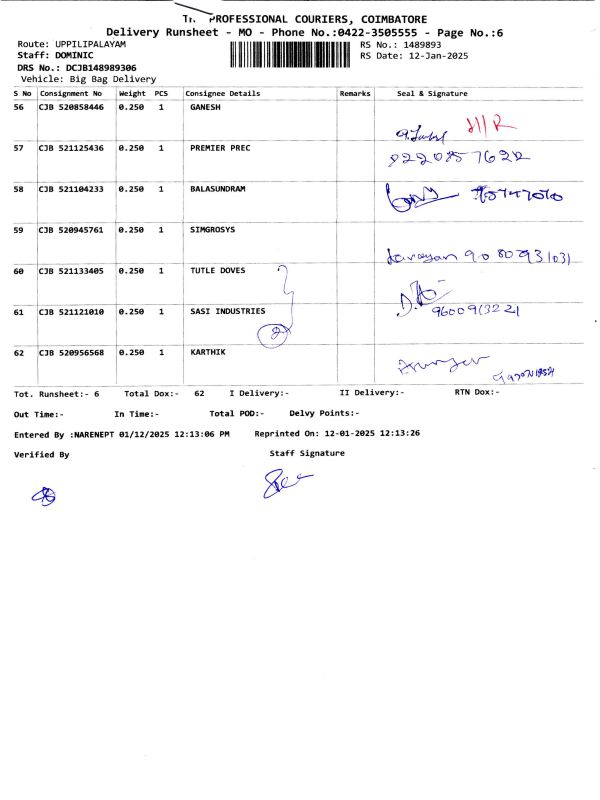 PROFESSIONAL COURIERS, COIMBATORE
Delivery Runsheet - MO - Phone No.:0422-3505555 - Page No.:6
Route: UPPILIPALAYAM RS No.: 1489893
Staff: DOMINIC RS Date: 12-Jan-2025
DRS No.: DCJB148989306
Vehicle: Big Bag Delivery
S No Consignment No Weight PCS Consignee Details Remarks Seal & Signature
56 CJB 520858446 0.250 1 GANESH
57 CJB 521125436 0.250 1 PREMIER PREC
58 CJB 521104233 0.250 1 BALASUNDRAM
59 CJB 520945761 0.250 1 SIMGROSYS
60 CJB 521133405 0.250 1 TUTLE DOVES
61 CJB 521121010 0.250 1 SASI INDUSTRIES
62 CJB 520956568 0.250 1 KARTHIK
Tot. Runsheet:- 6 Total Dox:- 62 I Delivery:- II Delivery:- RTN Dox:-
Out Time:- In Time:- Total POD:- Delvy Points:-
Entered By :NARENEPT 01/12/2025 12:13:06 PM Reprinted On: 12-01-2025 12:13:26
Verified By Staff Signature